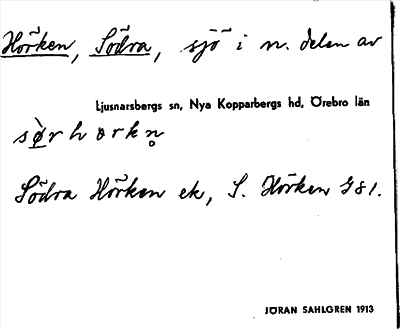 Hörken, Södra, sjö i n. delen av
Ljusnarsbergs sn, Nya Kopparbergs hd, Örebro län
sø̀rhørkn̥
Södra Hörken ek, S. Hörken G81.
JÖRAN SAHLGREN 1913